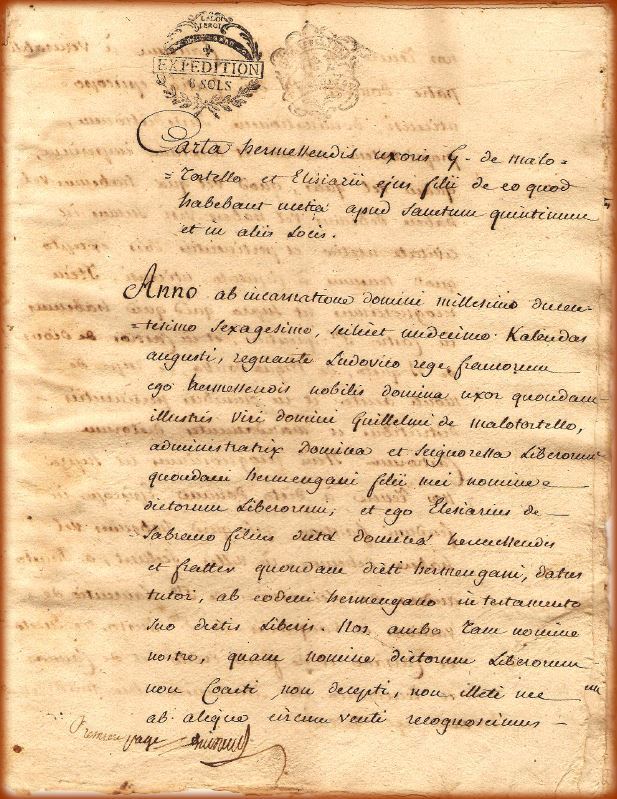 EXPEDITION
6 SOLS
Carta hermessendis uxoris G. de malo=
=Tortello et Elisiarii ejus filii de eo quod
habebant apud Sanctum quintinum
et in aliis Locis.
Anno ab incarnatione domini millesimo ducen-
=tesimo Sexagesimo, scilicet undecimo Kalendas
augusti, regnante Ludovico rege francorum
ego hermessendis nobilis domina uxor quondam
illustris Viri domini Guillelmi de malotortello,
administratrix Domina et Liberorum
quondam hermengani filii mei nomine
dictorum Liberorum, et ego Elesiarius de
Sabrano filius dicta domina hermessendis
et frater quondam dicti hermengani, datus
tutor, ab eodem hermengano in testamento
suo dictis Liberis. Nos ambo Tam nomine
nostro, quam nomine dictorum Liberorum
non Coacti non decepti, non illecti nec
ab aliquo circumventi recognoscimus –
Premiere page